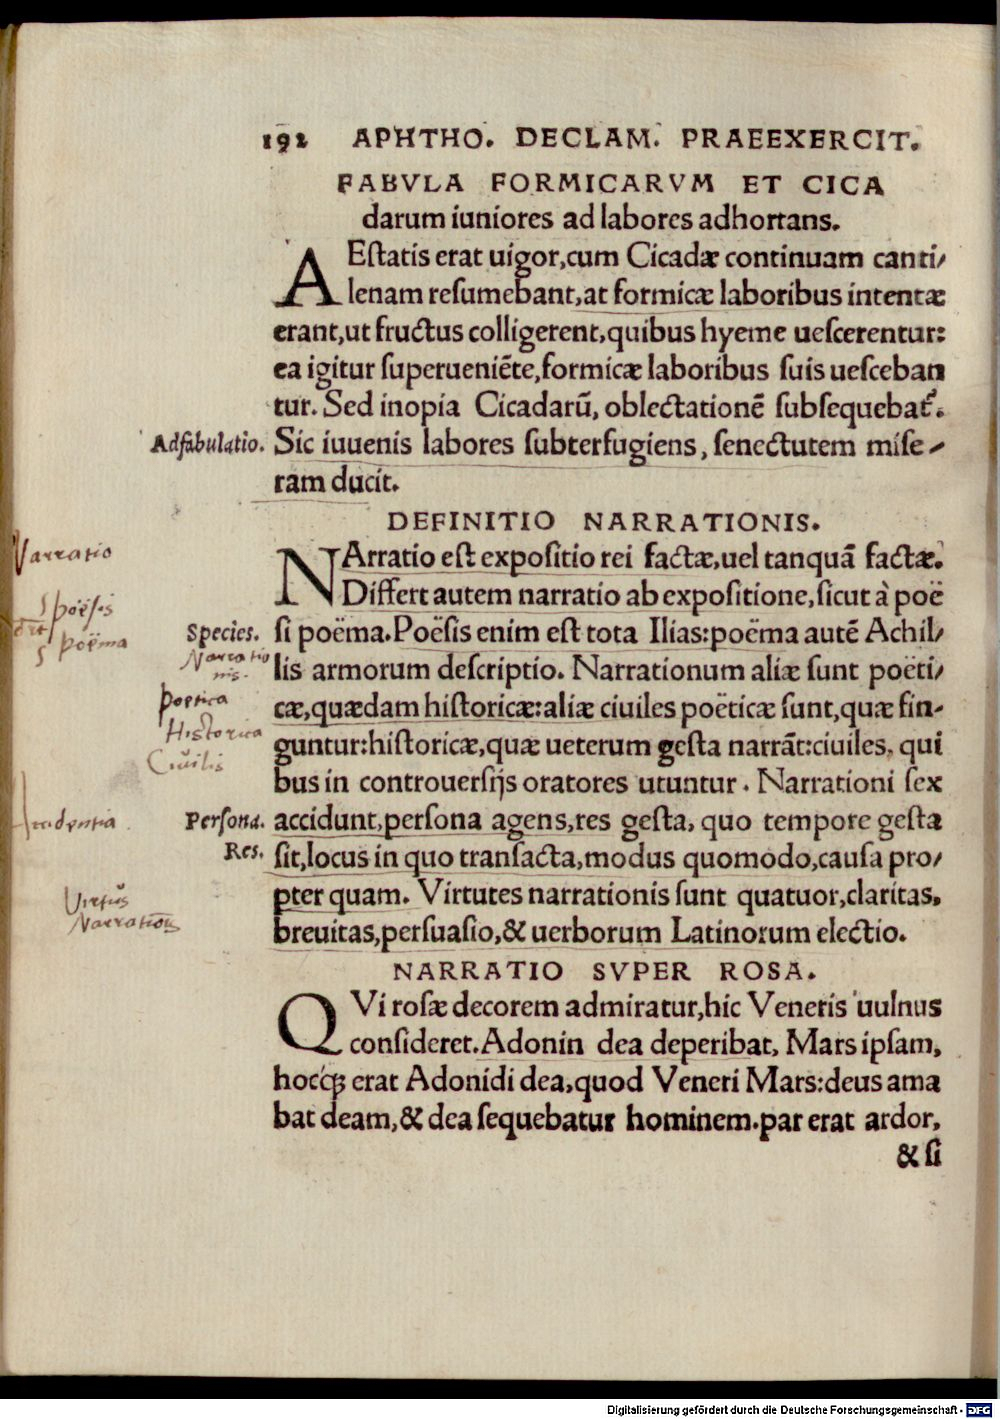 192 APHTHO. DECLAM. PRAEEXERCIT.
FABVLA FORMICARVM ET CICA
darum iuniores ad labores adhortans.
AEſtatis erat uigor,cum Cicadæ continuam canti/
lenam reſumebant,at formicæ laboribus intentæ
erant,ut fructus colligerent,quibus hyeme ueſcerentur:
ea igitur ſuperueniẽte,formicæ laboribus ſuis ueſceban
tur. Sed inopia Cicadarũ, oblectationẽ ſubſequebat᷑.
Adfabulatio. Sic iuuenis labores ſubterfugiens, ſenectutem miſe/
ram ducit.
DEFINITIO NARRATIONIS.
Narratio
NArratio eſt expoſitio rei factæ,uel tanquã factæ.
Differt autem narratio ab expoſitione,ſicut à poë
poësis
poëma
Species. ſi poëma.Poëſis enim eſt tota Ilias:poëma autẽ Achil/
Narratio
nis.
lis armorum deſcriptio. Narrationum aliæ ſunt poëti/
poetica
cæ,quædam hiſtoricæ:aliæ ciuiles poëticæ ſunt,quæ fin-
Historica
Ciuilis
guntur:hiſtoricæ,quæ ueterum geſta narrãt:ciuiles, qui
bus in controuerſijs oratores utuntur. Narrationi ſex
Persona. accidunt,perſona agens,res geſta, quo tempore geſta
Res. ſit,locus in quo tranſacta,modus quomodo,cauſa pro/
Virtus
Narrationis
pter quam. Virtutes narrationis ſunt quatuor,claritas,
breuitas,perſuaſio,& uerborum Latinorum electio.
NARRATIO SVPER ROSA.
QVi roſæ decorem admiratur,hic Veneris uulnus
conſideret.Adonin dea deperibat, Mars ipſam,
hocꝙ erat Adonidi dea,quod Veneri Mars:deus ama
bat deam,& dea ſequebatur hominem.par erat ardor,
& ſi
Digitalisierung gefördert durch die Deutsche Forschungsgemeinschaft - DFG